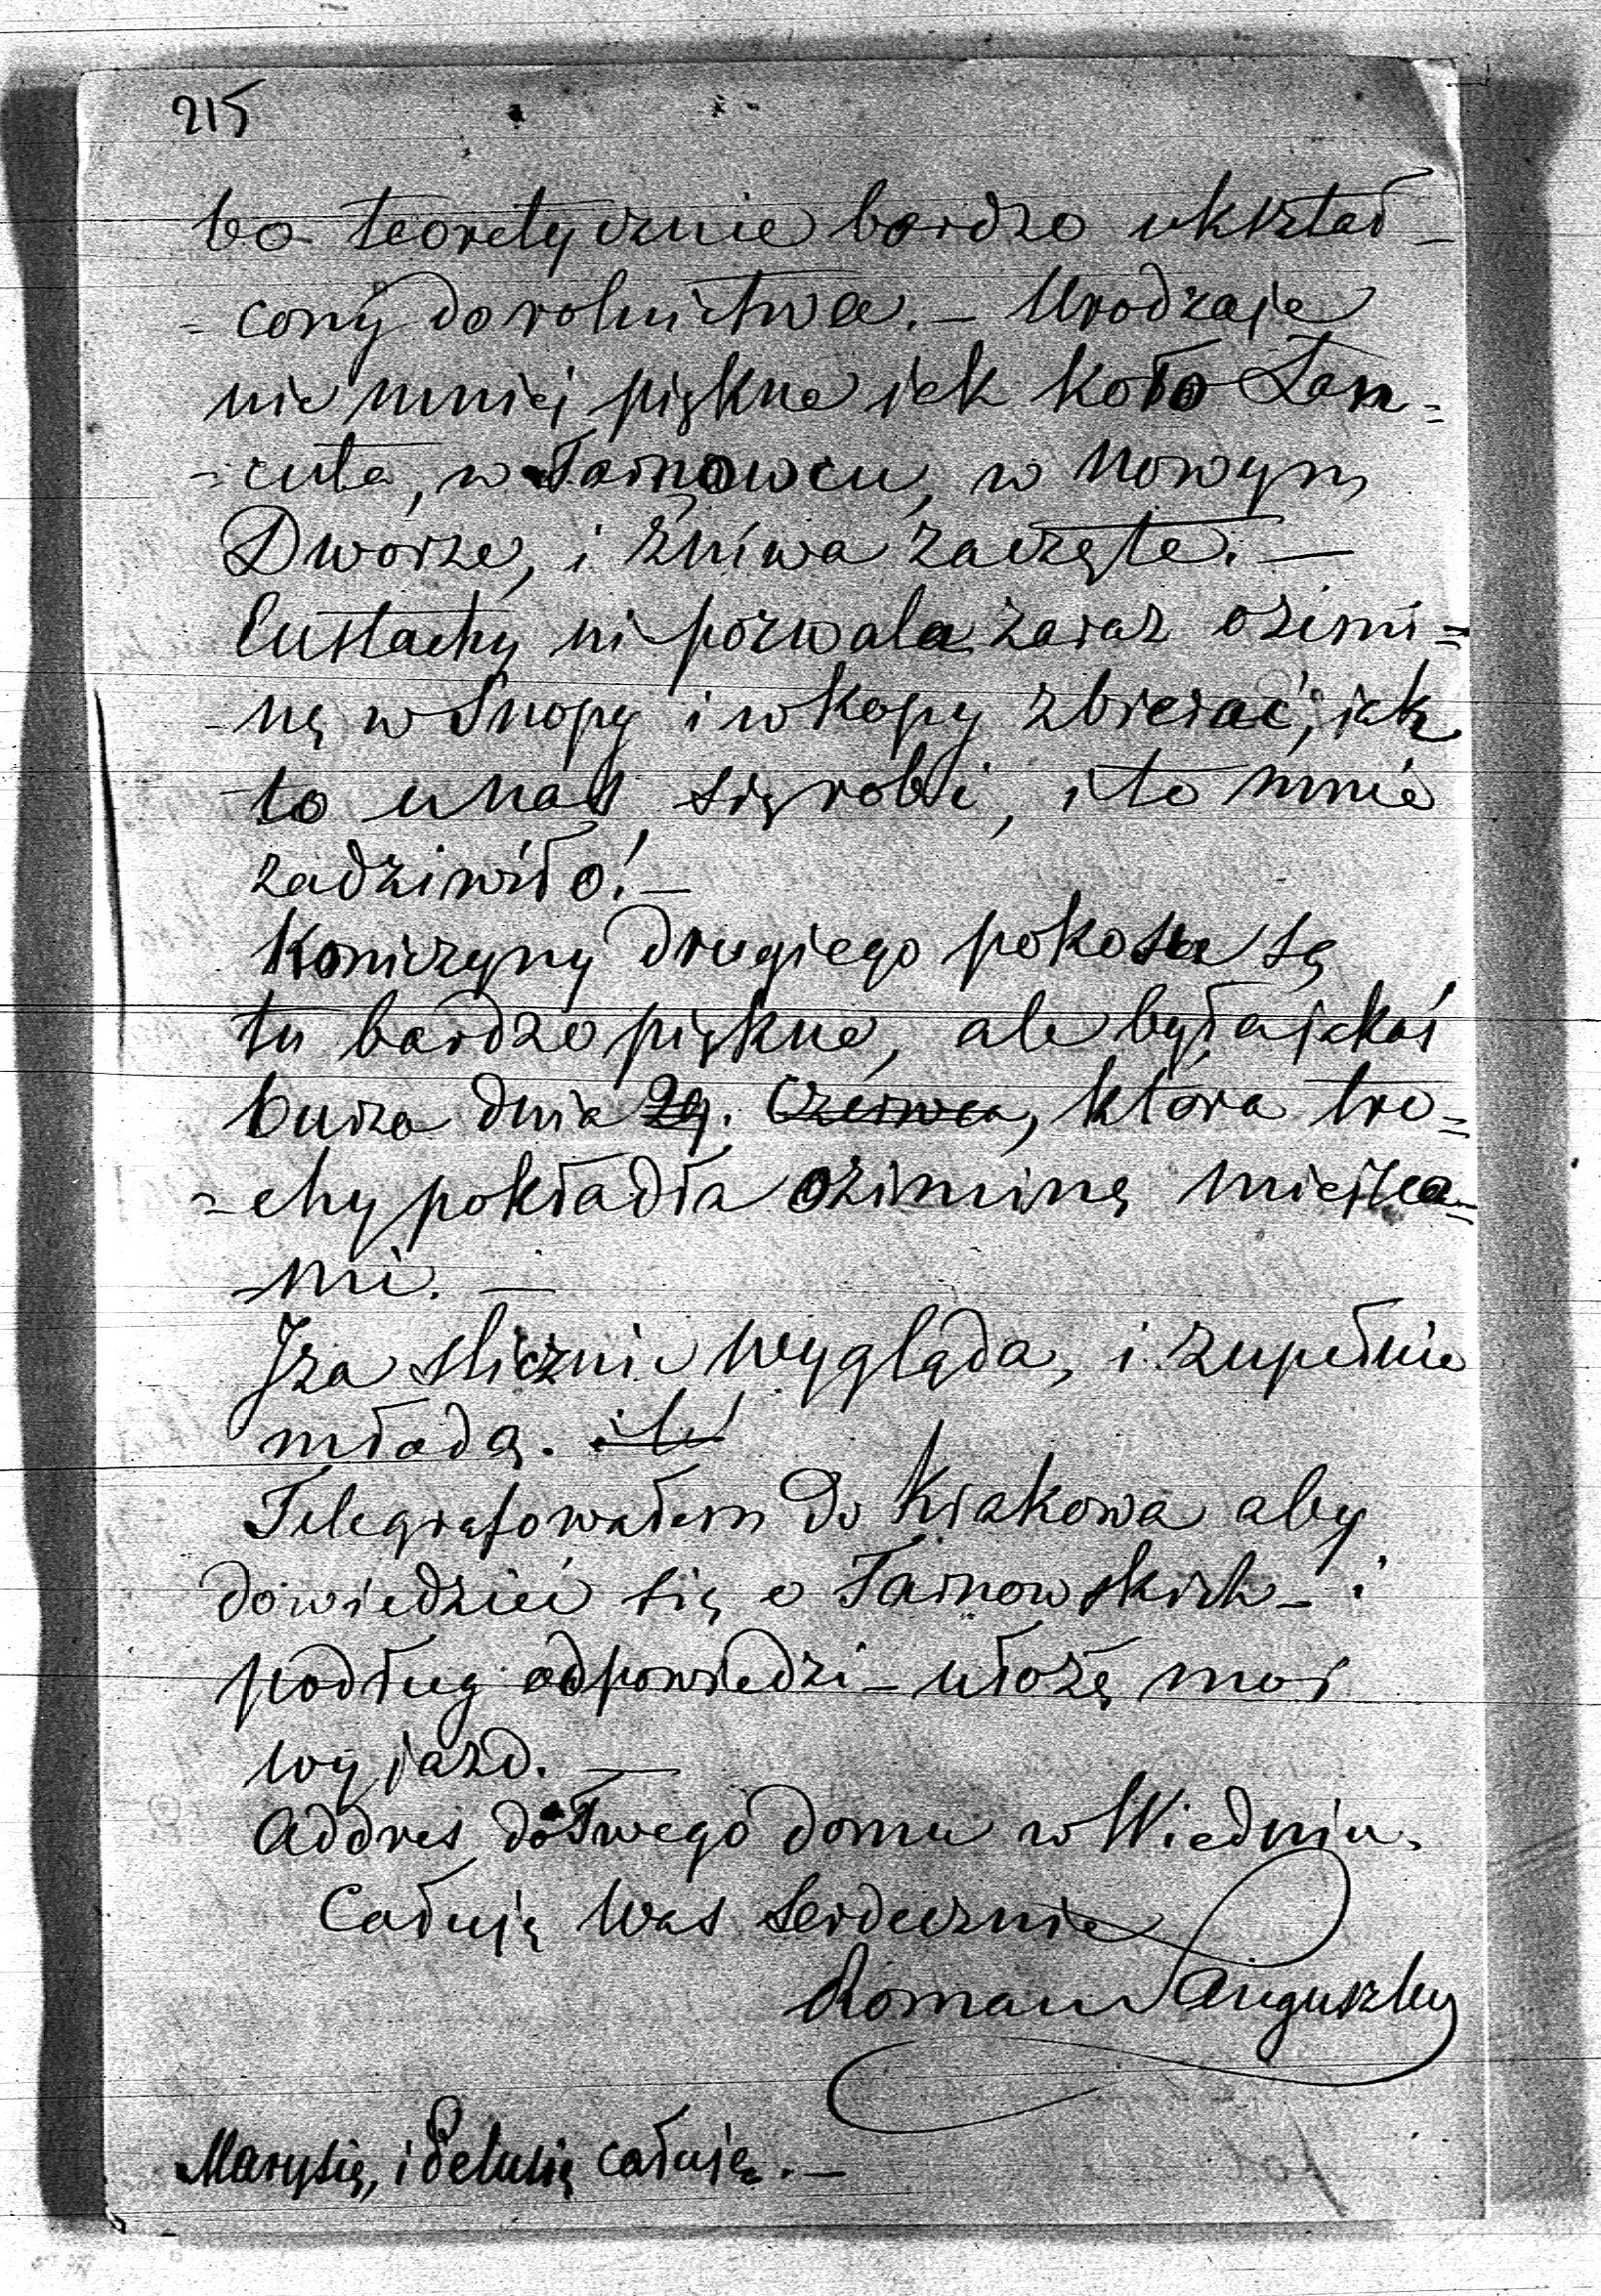 215
bo teoretycznie bardzo ukształ-
-cony do rolnictwa. - Urodzaje
nie mniej piękne jak koło Łan-
-cuta, w Tarnowcu, w Nowym
Dworze, i żniwa zaczęte. -
Eustachy ni pozwala zaraz ozimi-
-nę w snopy i w kopy zbierać, jak
to u nas się robi, i to mnie
zadziwiło! -
Koniczyny drugiego pokosu są
tu bardzo piękne, ale była jakaś
burza dnia 29. Czerwca, która tro-
-chy pokładła oziminę miejsca-
-mi. -
Iza slicznie wygląda, i zupełnie
młodą.
Telegrafowałem do Krakowa aby
dowiedzieć się o Tarnowskich - i
podług odpowiedzi - ułożę moj
wyjazd. -
Addres do Twego domu w Wiedniu.
Całuję Was serdecznie
Roman Sanguszko
Marysię, i Helusię całuję. -